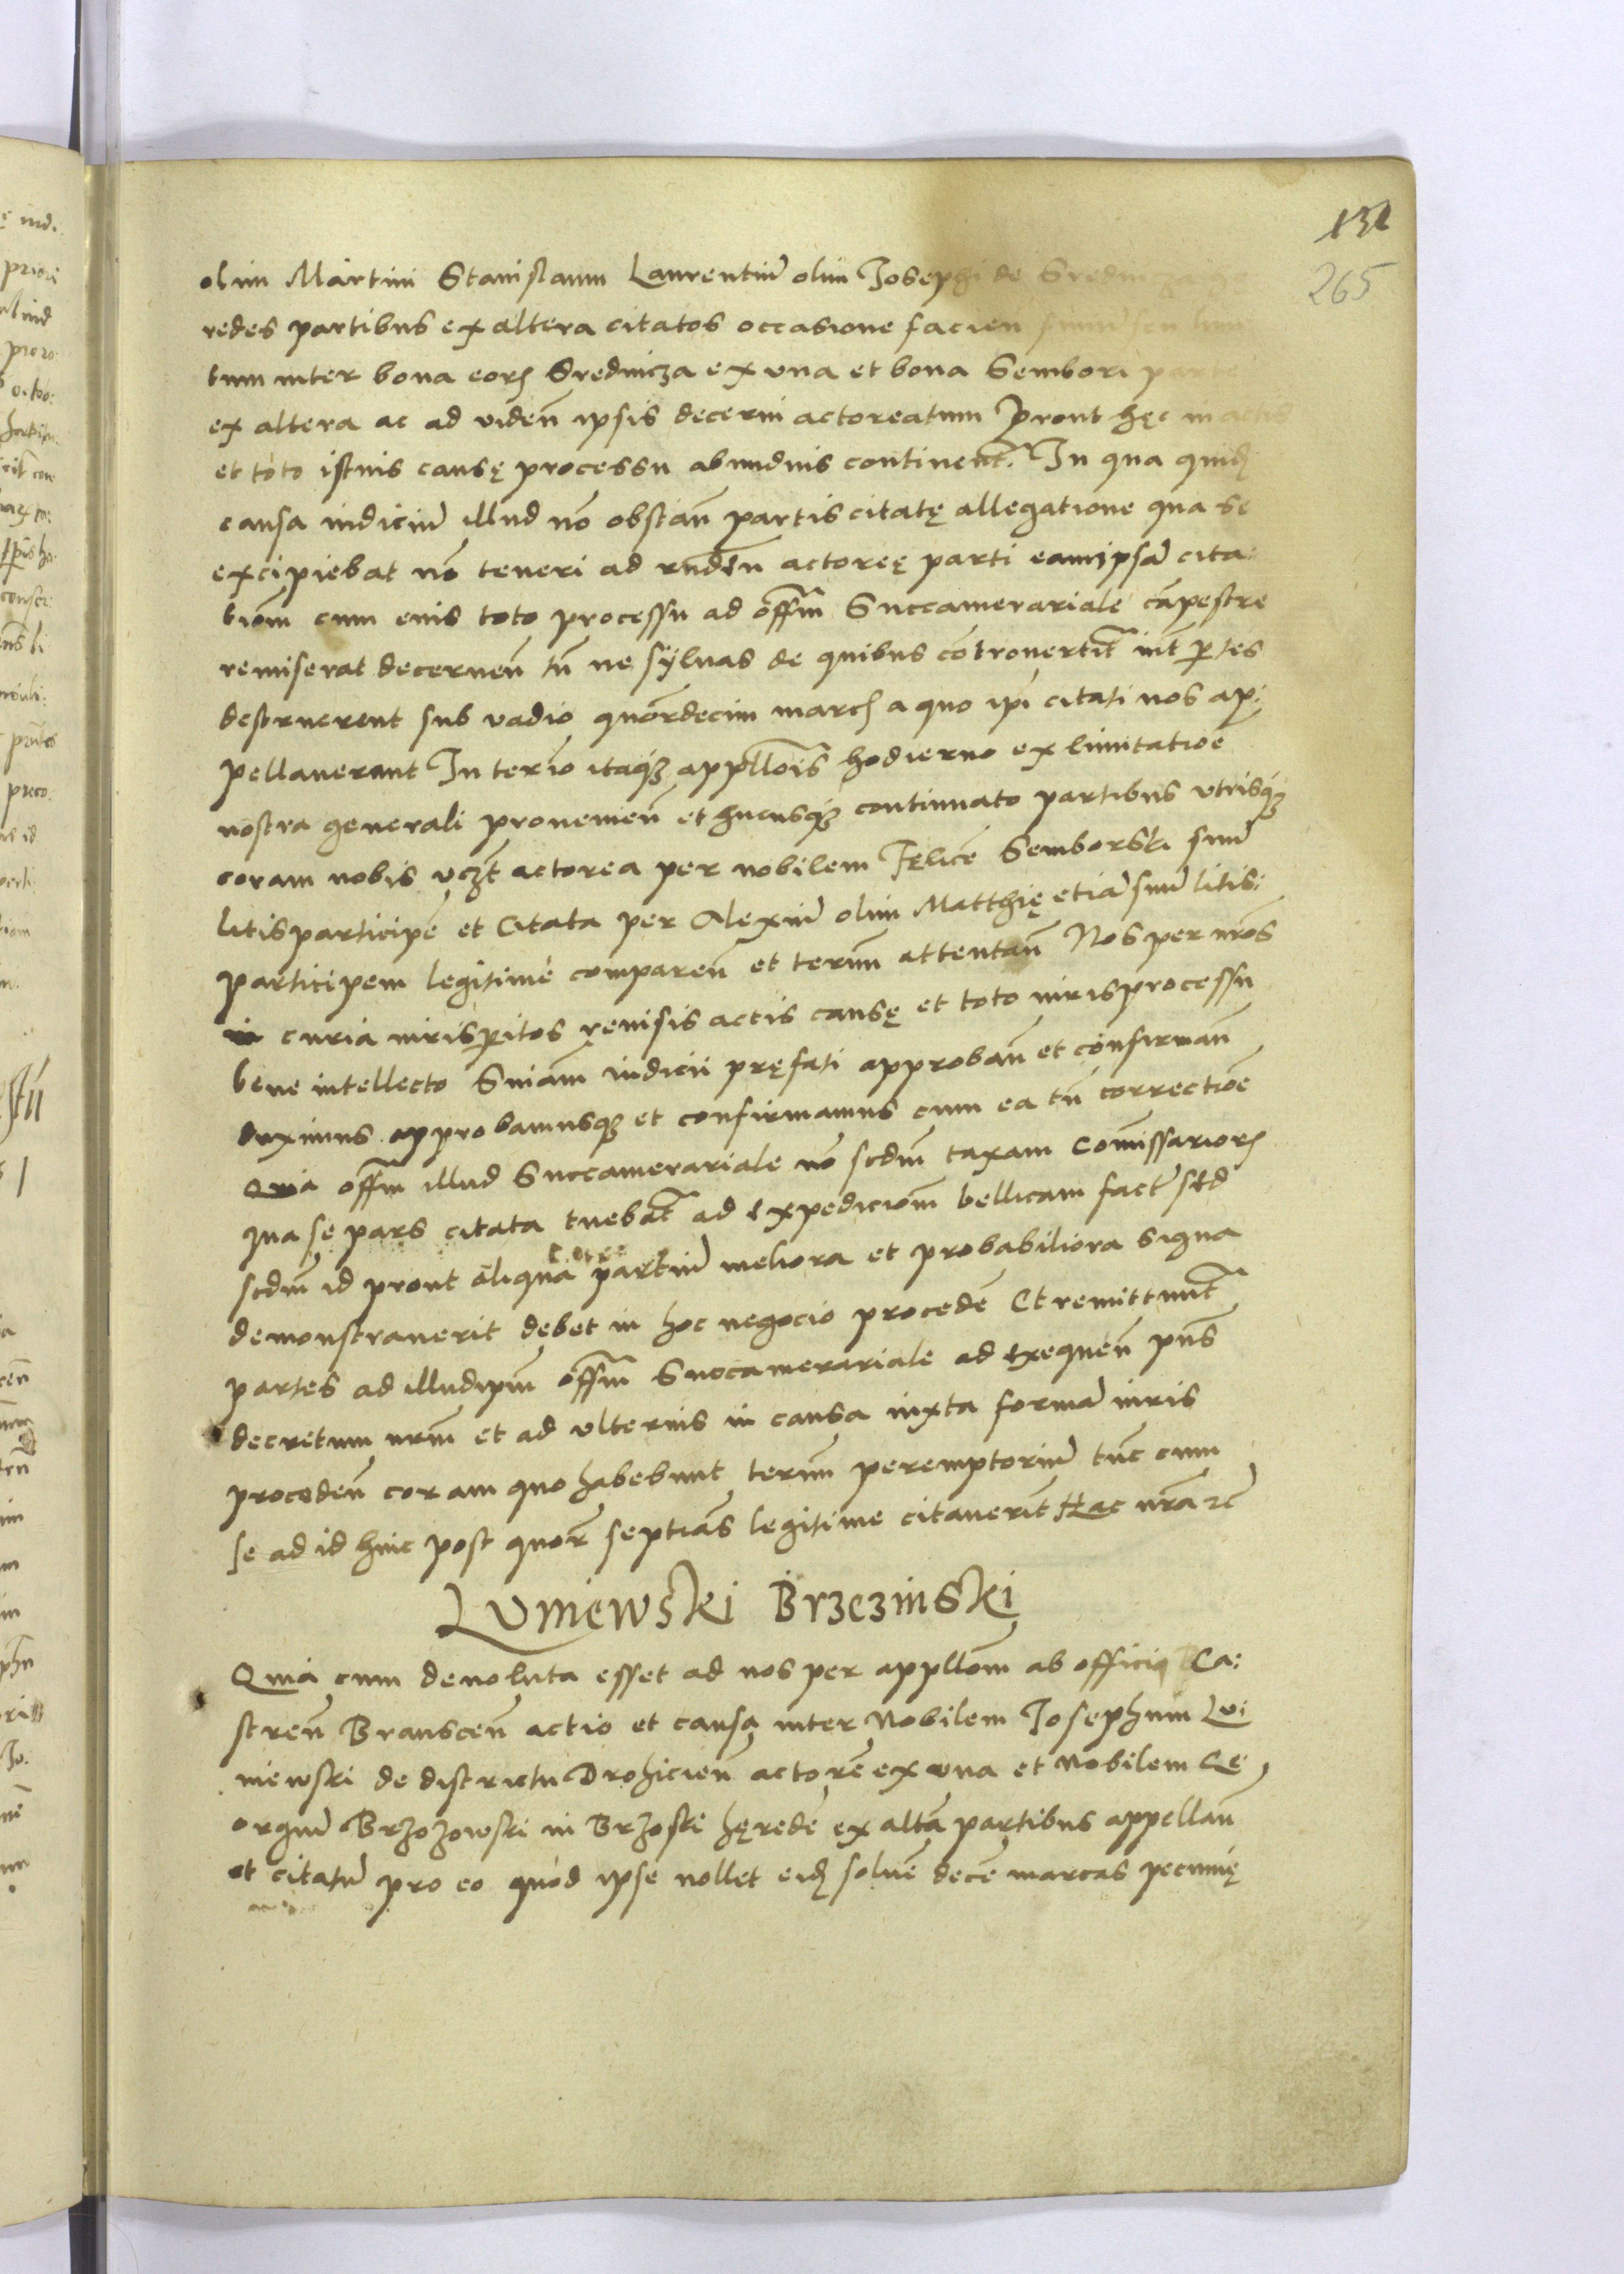 132
265
olim Martini Stanislaum Laurentiũ olim Josephi de Sredn
redes partibus ex altera citatos occasione facien finiũ seu limi
tum inter bona eorũ Srednicza ex vna et bona Sembori parte
ex altera ac ad videñ ipsis decerni actoreatum Prout hęc in actis
et toto istius causę processu abundius continent. In qua quid
causa iudiciũ illud nõ obstañ partis citatę allegatione qua se
excipiebat nõ teneri ad rñdẽn actoreę parti eamipsã cita:
tiõm cum eius toto processu ad offm Succamerariale cãpestre
remiserat decerneñ tñ ne sylvas de quibus cõtrovertit int ptes
destruerent sub vadio quõrdecim march a quo ipi citati nos ap:
pellauerunt In terio itaq3 appllõis hodierno ex limitatiõe
nostra generali provenieñ et hucusq3 continuato partibus vtrisq3
coram nobis vczt actorea per nobilem Fęlicẽ Semborski suũ
litisparticipẽ et Citata per Alexiũ olim Matthię etiã suũ litis:
participem legitime compareñ et termm attentañ Nos per nros
curia iurisperitos revisis actis causę et toto iurisprocessu
bene intellecto Sniam iudicii pręfati approbañ et confirmañ
duximus approbamusq3 et confirmamus cum ea tñ correctiõe
Quia offm illud Succamerariale nõ scdm taxam Comissariorũ
qua se pars citata tuebat ad expediciõm bellicam fact sed
scdm id prout aliqua partiũ meliora et probabiliora signa
demonstraverit debet in hoc negocio procedẽ Et remittunt
partes ad illudipm offm Succamerariale ad exequeñ pñs
decretum nrm et ad vlterius in causa iuxta formã iuris
procedeñ coram quo habebunt termm peremptoriũ tũc cum
se ad id huic post quõr septiãs legitime citaverit Hac nrã rc
Luniewski Brzezinski
Quia cum devoluta esset ad nos per appllõm ab officio Ca:
streñ Bransceñ actio et causa inter Nobilem Josephum Lu
niewski de districtu Drohicieñ actorẽ ex vna et Nobilem Ge
orgiũ Brzozowski in Brzoski hęredẽ ex altã partibus appellañ
et citatũ pro eo quod ipse nollet eid solvẽ decẽ marcas pecunię